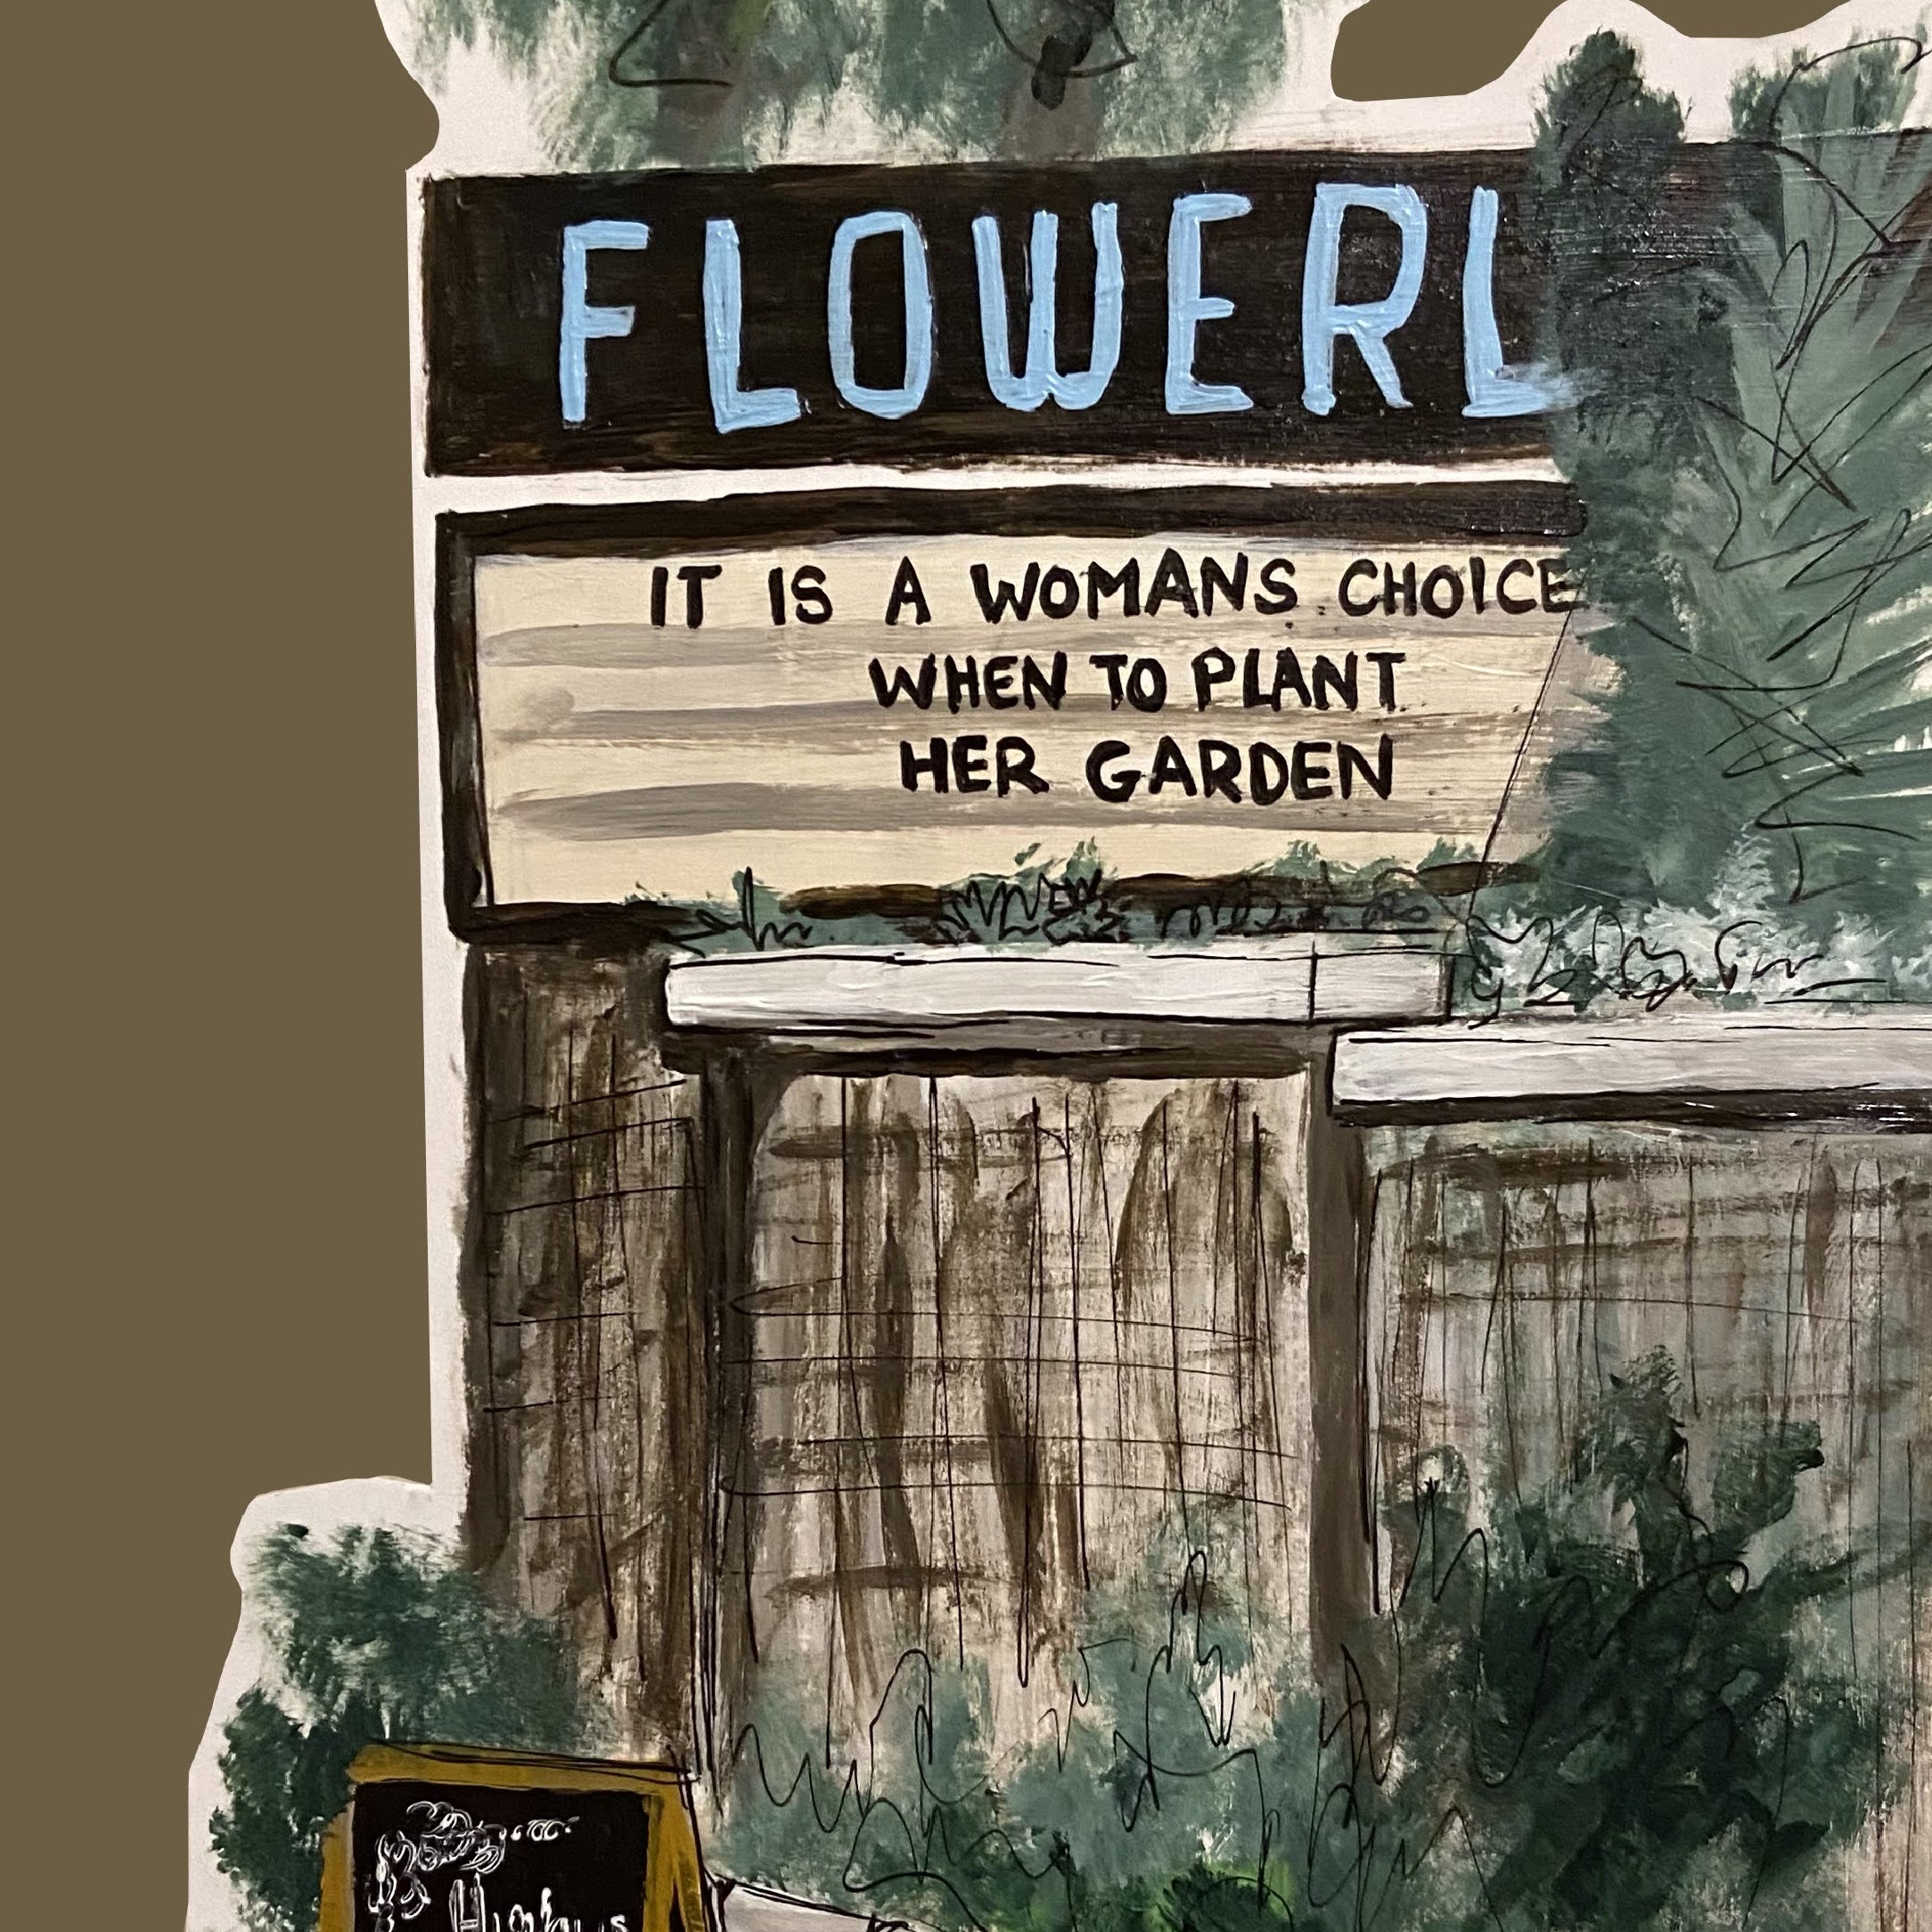 FLOWERL
IT IS A WOMANS CHOICE
WHEN TO PLANT
HER GARDEN